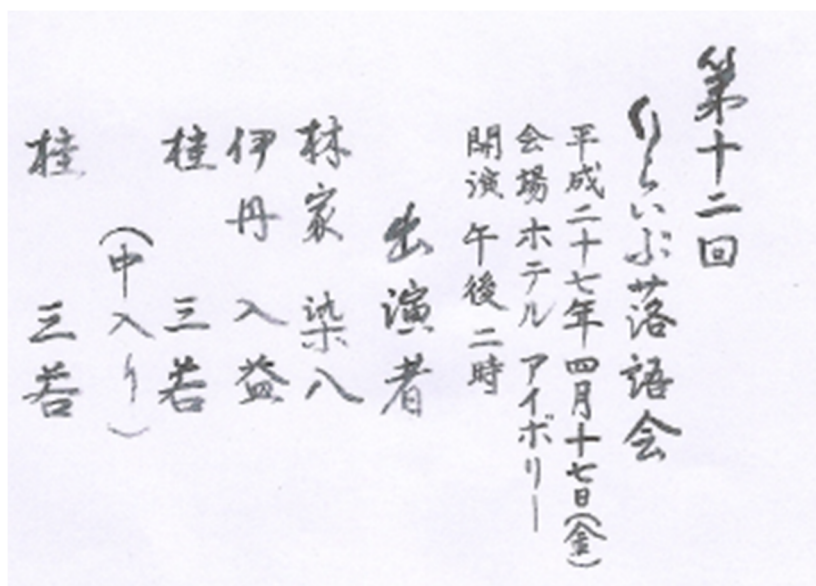 第十二回
りらいぶ落語会
平成二十七年四月十七日(金)
会場 ホテル アイボリー
開演 午後二時
出演者
林家 染八
伊丹 入益
桂 三若
(中入り)
桂 三若